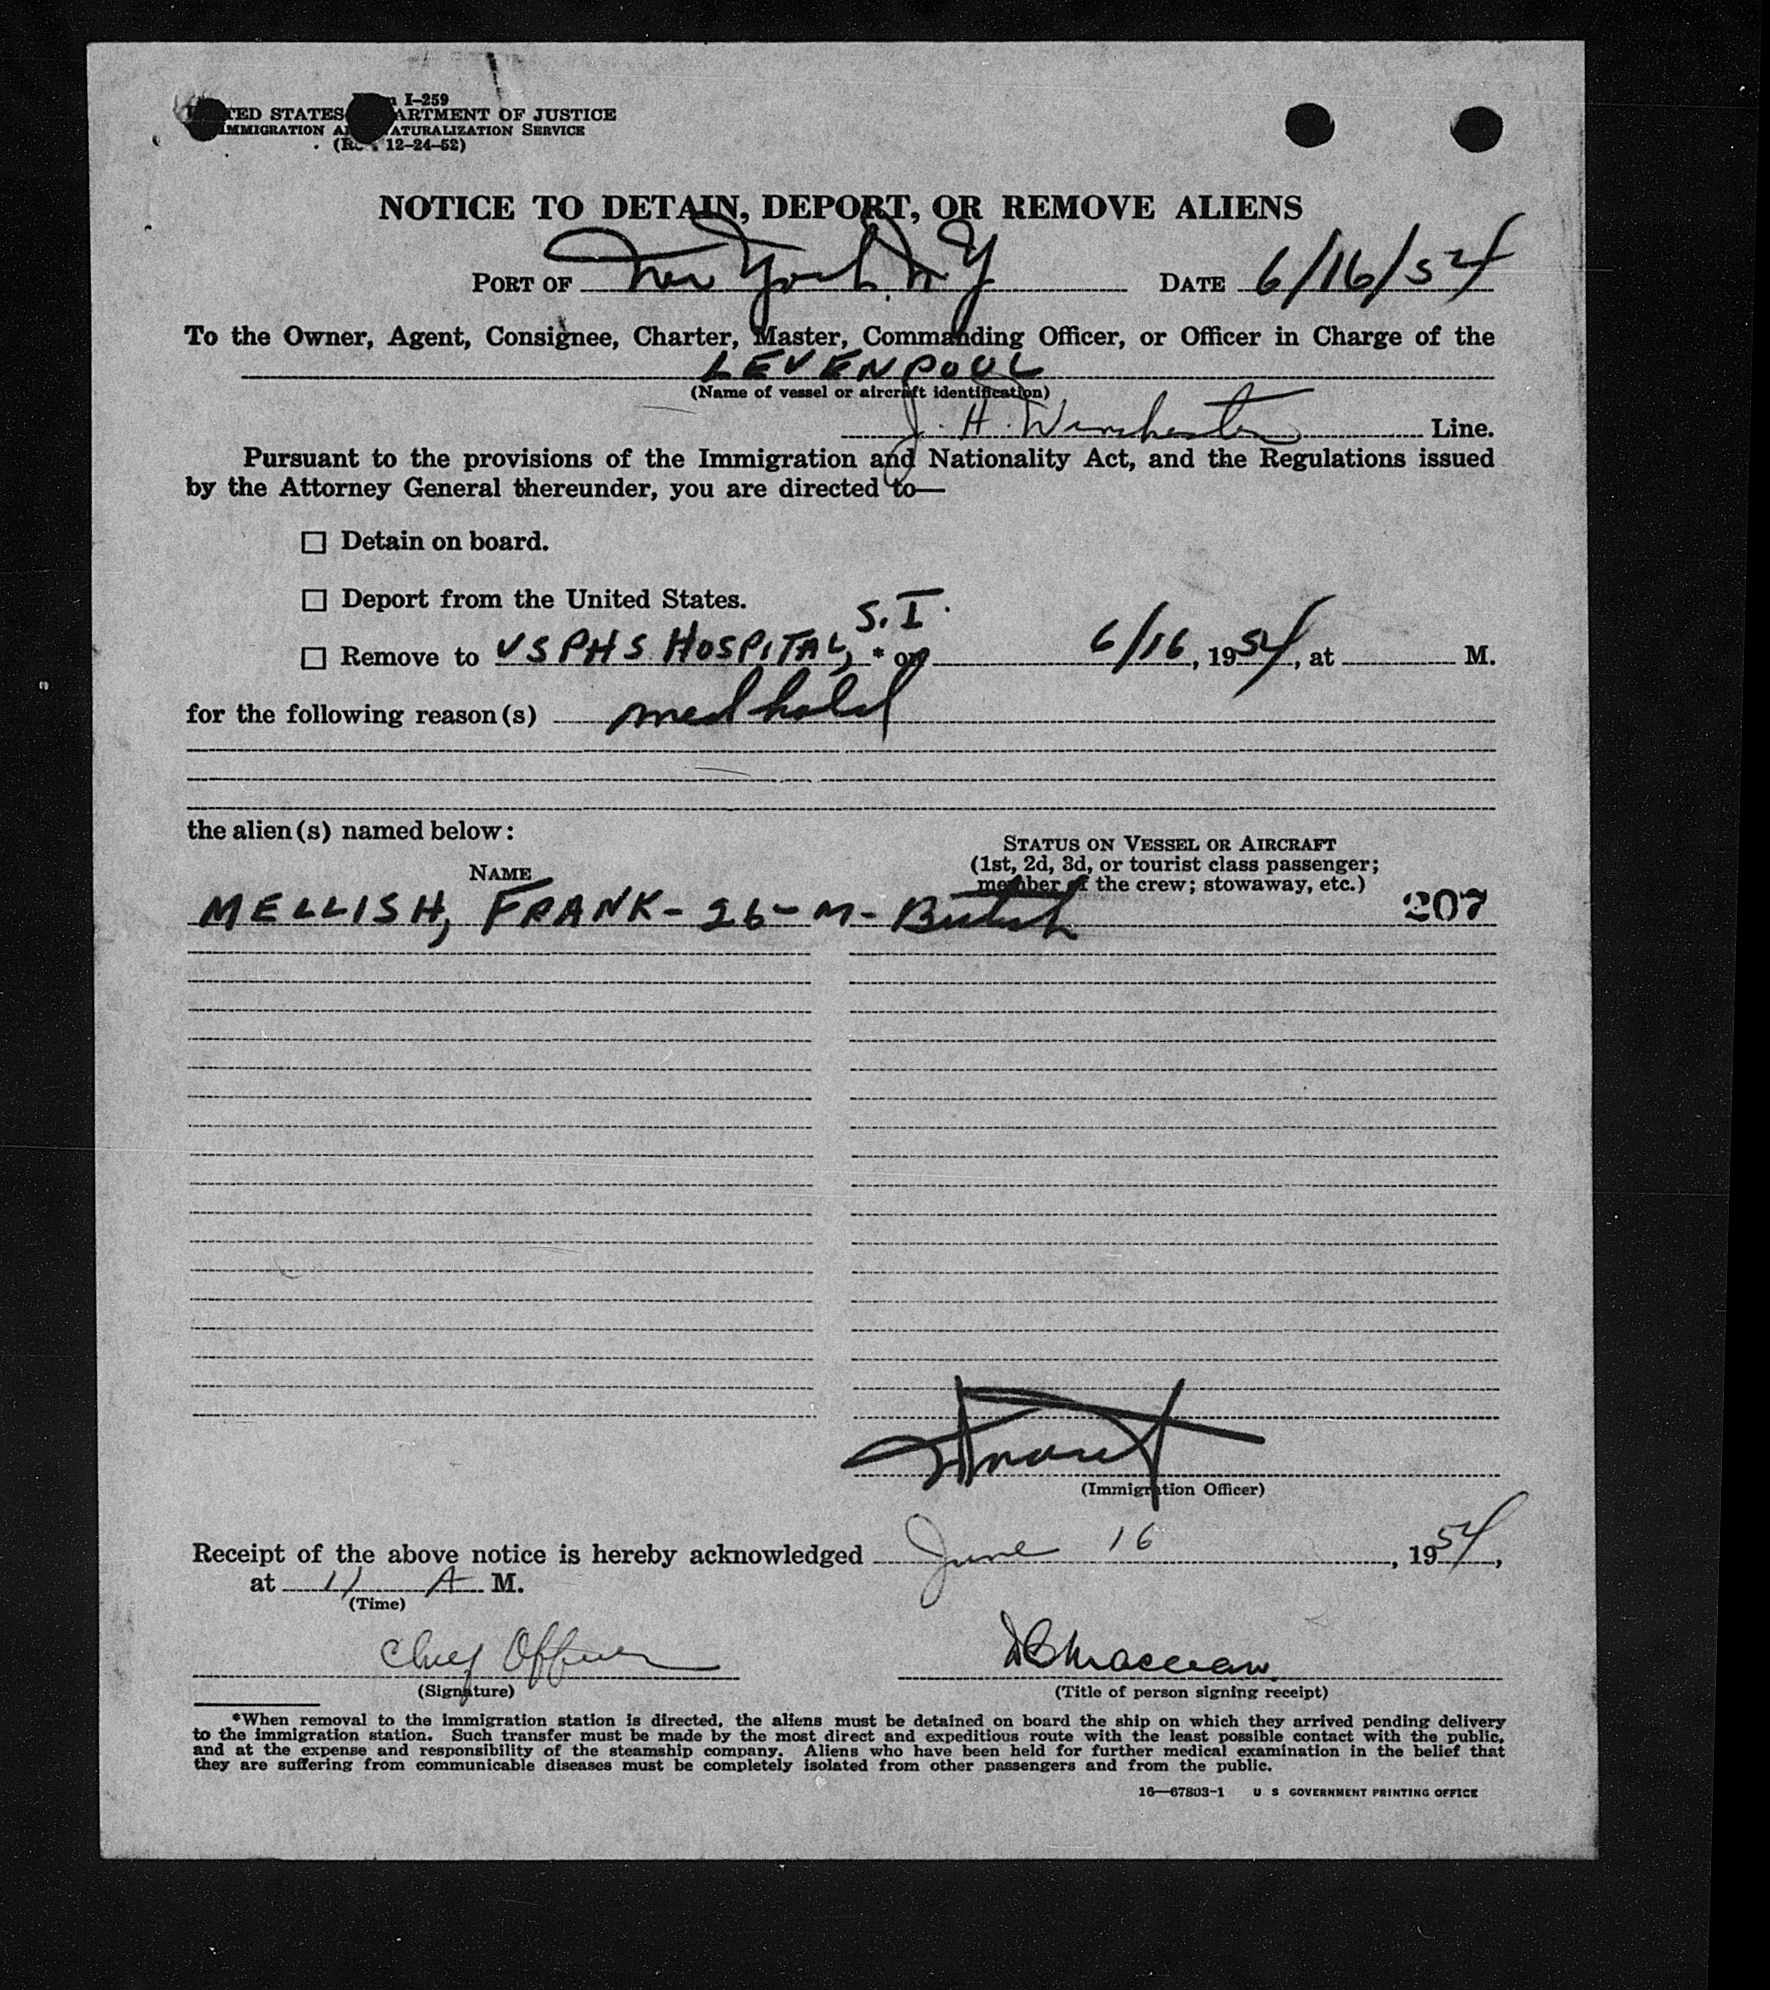 I-259
UNITED STATES DEPARTMENT OF JUSTICE
IMMIGRATION AND NATURALIZATION SERVICE
(Rev. 12-24-52)
NOTICE TO DETAIN, DEPORT, OR REMOVE ALIENS
PORT OF New York, N Y DATE 6/16/54
To the Owner, Agent, Consignee, Charter, Master, Commanding Officer, or Officer in Charge of the
LEVENPOOL
(Name of vessel or aircraft identification)
J. H. Winchester Line.
Pursuant to the provisions of the Immigration and Nationality Act, and the Regulations issued
by the Attorney General thereunder, you are directed to—
☐ Detain on board.
☐ Deport from the United States.
☐ Remove to USPHS HOSPITAL, S.I. * on 6/16, 1954, at M.
for the following reason(s) med hold
the alien(s) named below:
NAME
STATUS ON VESSEL OR AIRCRAFT
(1st, 2d, 3d, or tourist class passenger;
member of the crew; stowaway, etc.)
MELLISH, FRANK - 26 - M - British 207
(Immigration Officer)
Receipt of the above notice is hereby acknowledged June 16, 1954,
at 11 A M.
(Time)
Chief Officer
(Signature)
(Title of person signing receipt)
*When removal to the immigration station is directed, the aliens must be detained on board the ship on which they arrived pending delivery
to the immigration station. Such transfer must be made by the most direct and expeditious route with the least possible contact with the public,
and at the expense and responsibility of the steamship company. Aliens who have been held for further medical examination in the belief that
they are suffering from communicable diseases must be completely isolated from other passengers and from the public.
16—67803-1 U S GOVERNMENT PRINTING OFFICE